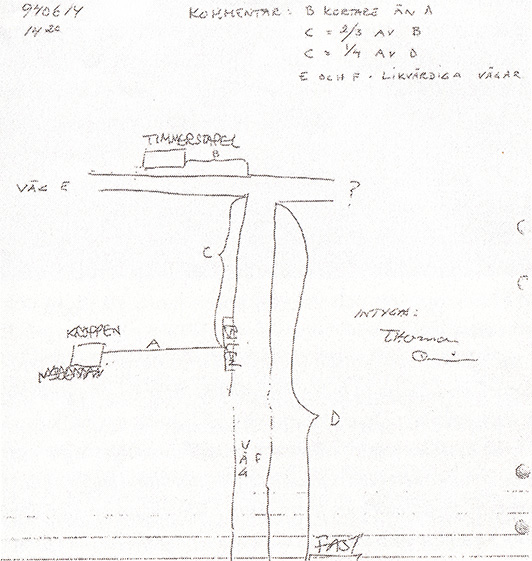 940614
14 20
KOMMENTAR: B KORTARE ÄN A
C = 2/3 AV B
C = 1/4 AV D
E OCH F - LIKVÄRDIGA VÄGAR
TIMMERSTAPEL
B
VÄG E
?
C
INTYGA:
Thomas
KROPPEN
A
BILEN
D
VÄG F
FAST